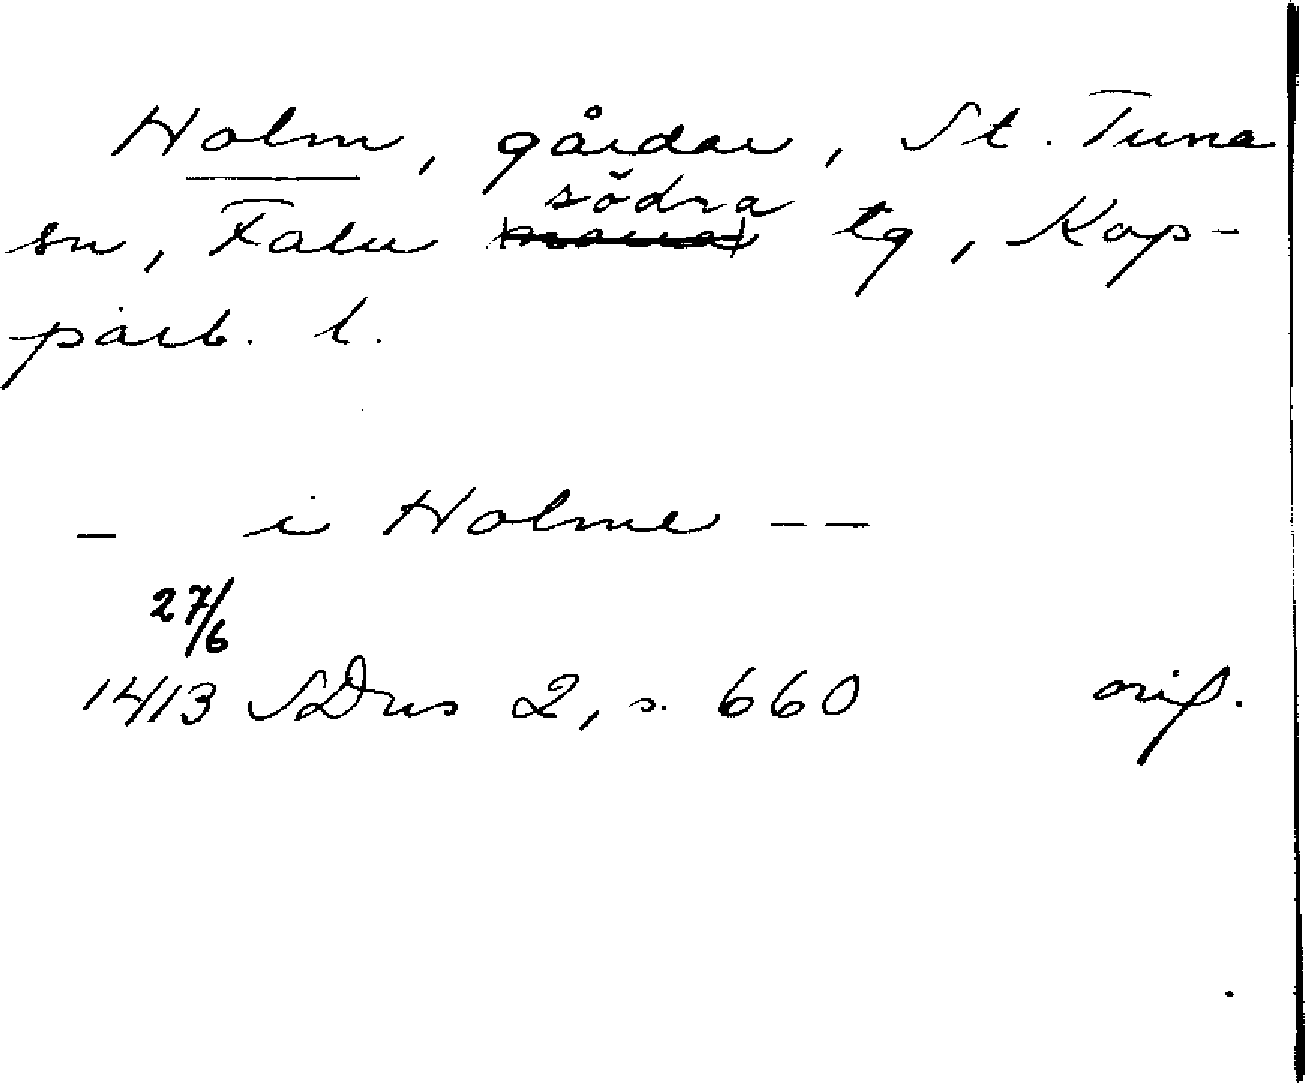 Holm, gårdar, St. Tuna
sn, Falu södra tg, Kop-
parb. l.
_ i Holme _ _
27/6
1413 SDns 2, s. 660 orig.